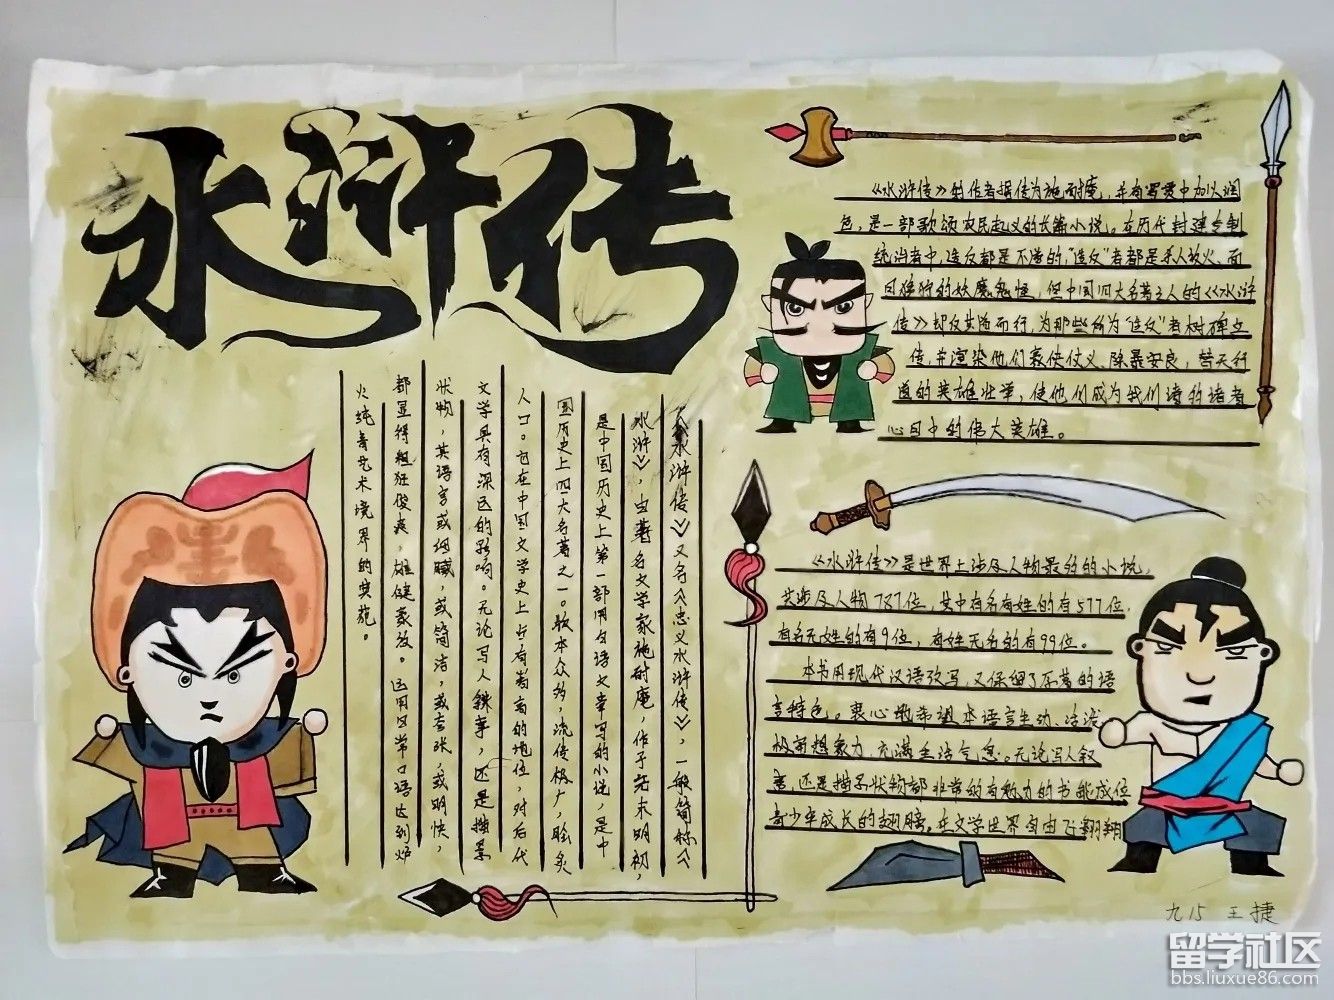 水浒传
《水浒传》又名《忠义水浒传》，一般简称《
水浒》，由著名文学家施耐庵，作于元末明初，
是中国历史上第一部用白话文章写的小说，是中
国历史上四大名著之一。版本众多，流传极广，脍炙
人口。它在中国文学史上占有着高的地位，对后代
文学具有深远的影响。无论写人叙事，还是描景
状物，其语言或细腻，或简洁，或夸张，或明快，
都显得粗狂俊爽，雄健豪放。运用日常口语达到炉
火纯青艺术境界的实施。
《水浒传》的作者据传为施耐庵，并有罗贯中加以润
色，是一部歌颂农民起义的长篇小说。在历代封建专制
统治者中，造反都是不湝的，“造反”者都是杀人放火、面
目狰狞的妖魔鬼怪，但中国四大名著之人的《水浒
传》却反其道而行，为那些所为“造反”者树碑立
传，并渲染他们豪侠仗义、除暴安良，替天行
道的英雄壮举，使他们成为我们读的诸者
心目中的伟大英雄。
《水浒传》是世界上涉及人物最多的小说，
共涉及人物787位，其中有名有姓的有577位，
有名无姓的有9位，有姓无名的有99位。
本书用现代汉语改写，又保留了原著的语
言特色。衷心地希望本语言生动、活泼
极前想象力，充满生活气息。无论写人叙
事，还是描子状物都非常的有魅力的书能成位
青少年成长的翅膀。在文学世界自由飞翱翔
九15 王捷
留学社区
bbs.liuxue86.com